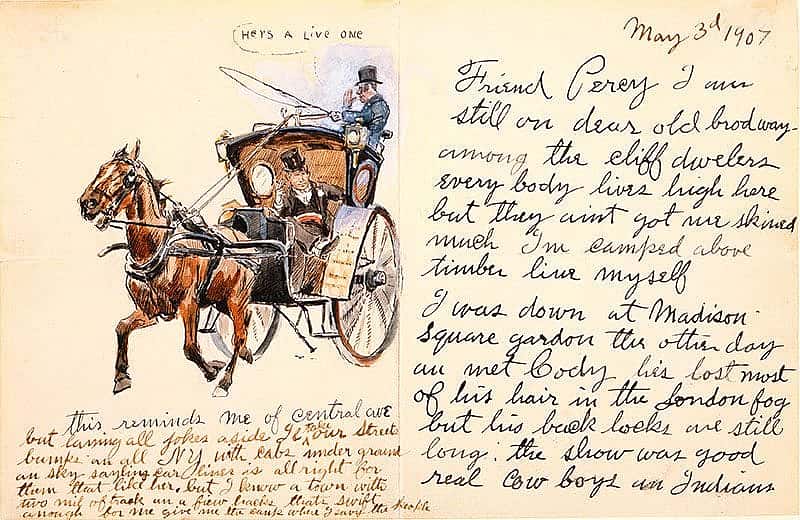 HeRS A Live ONE
this reminds me of central ave
but laning all jokes aside Il take our Streets
bumps an all NY with cabs under ground
an sky car lines is all right for
them that like her. but I know a town with
two mils of track an a fiew hacks thats swift
anough for me give me the camp where I savy the people
May 3d 1907
Friend Percy I am
still on dear old brodway
among the cliff dwelers
every body lives high here
but they aint got me skined
much Im camped above
timber line myself
I was down at Madison
Square gardon the other day
an met Cody hes lost most
of his hair in the London fog
but his back locks are still
long. the show was good
real Cow boys an Indians